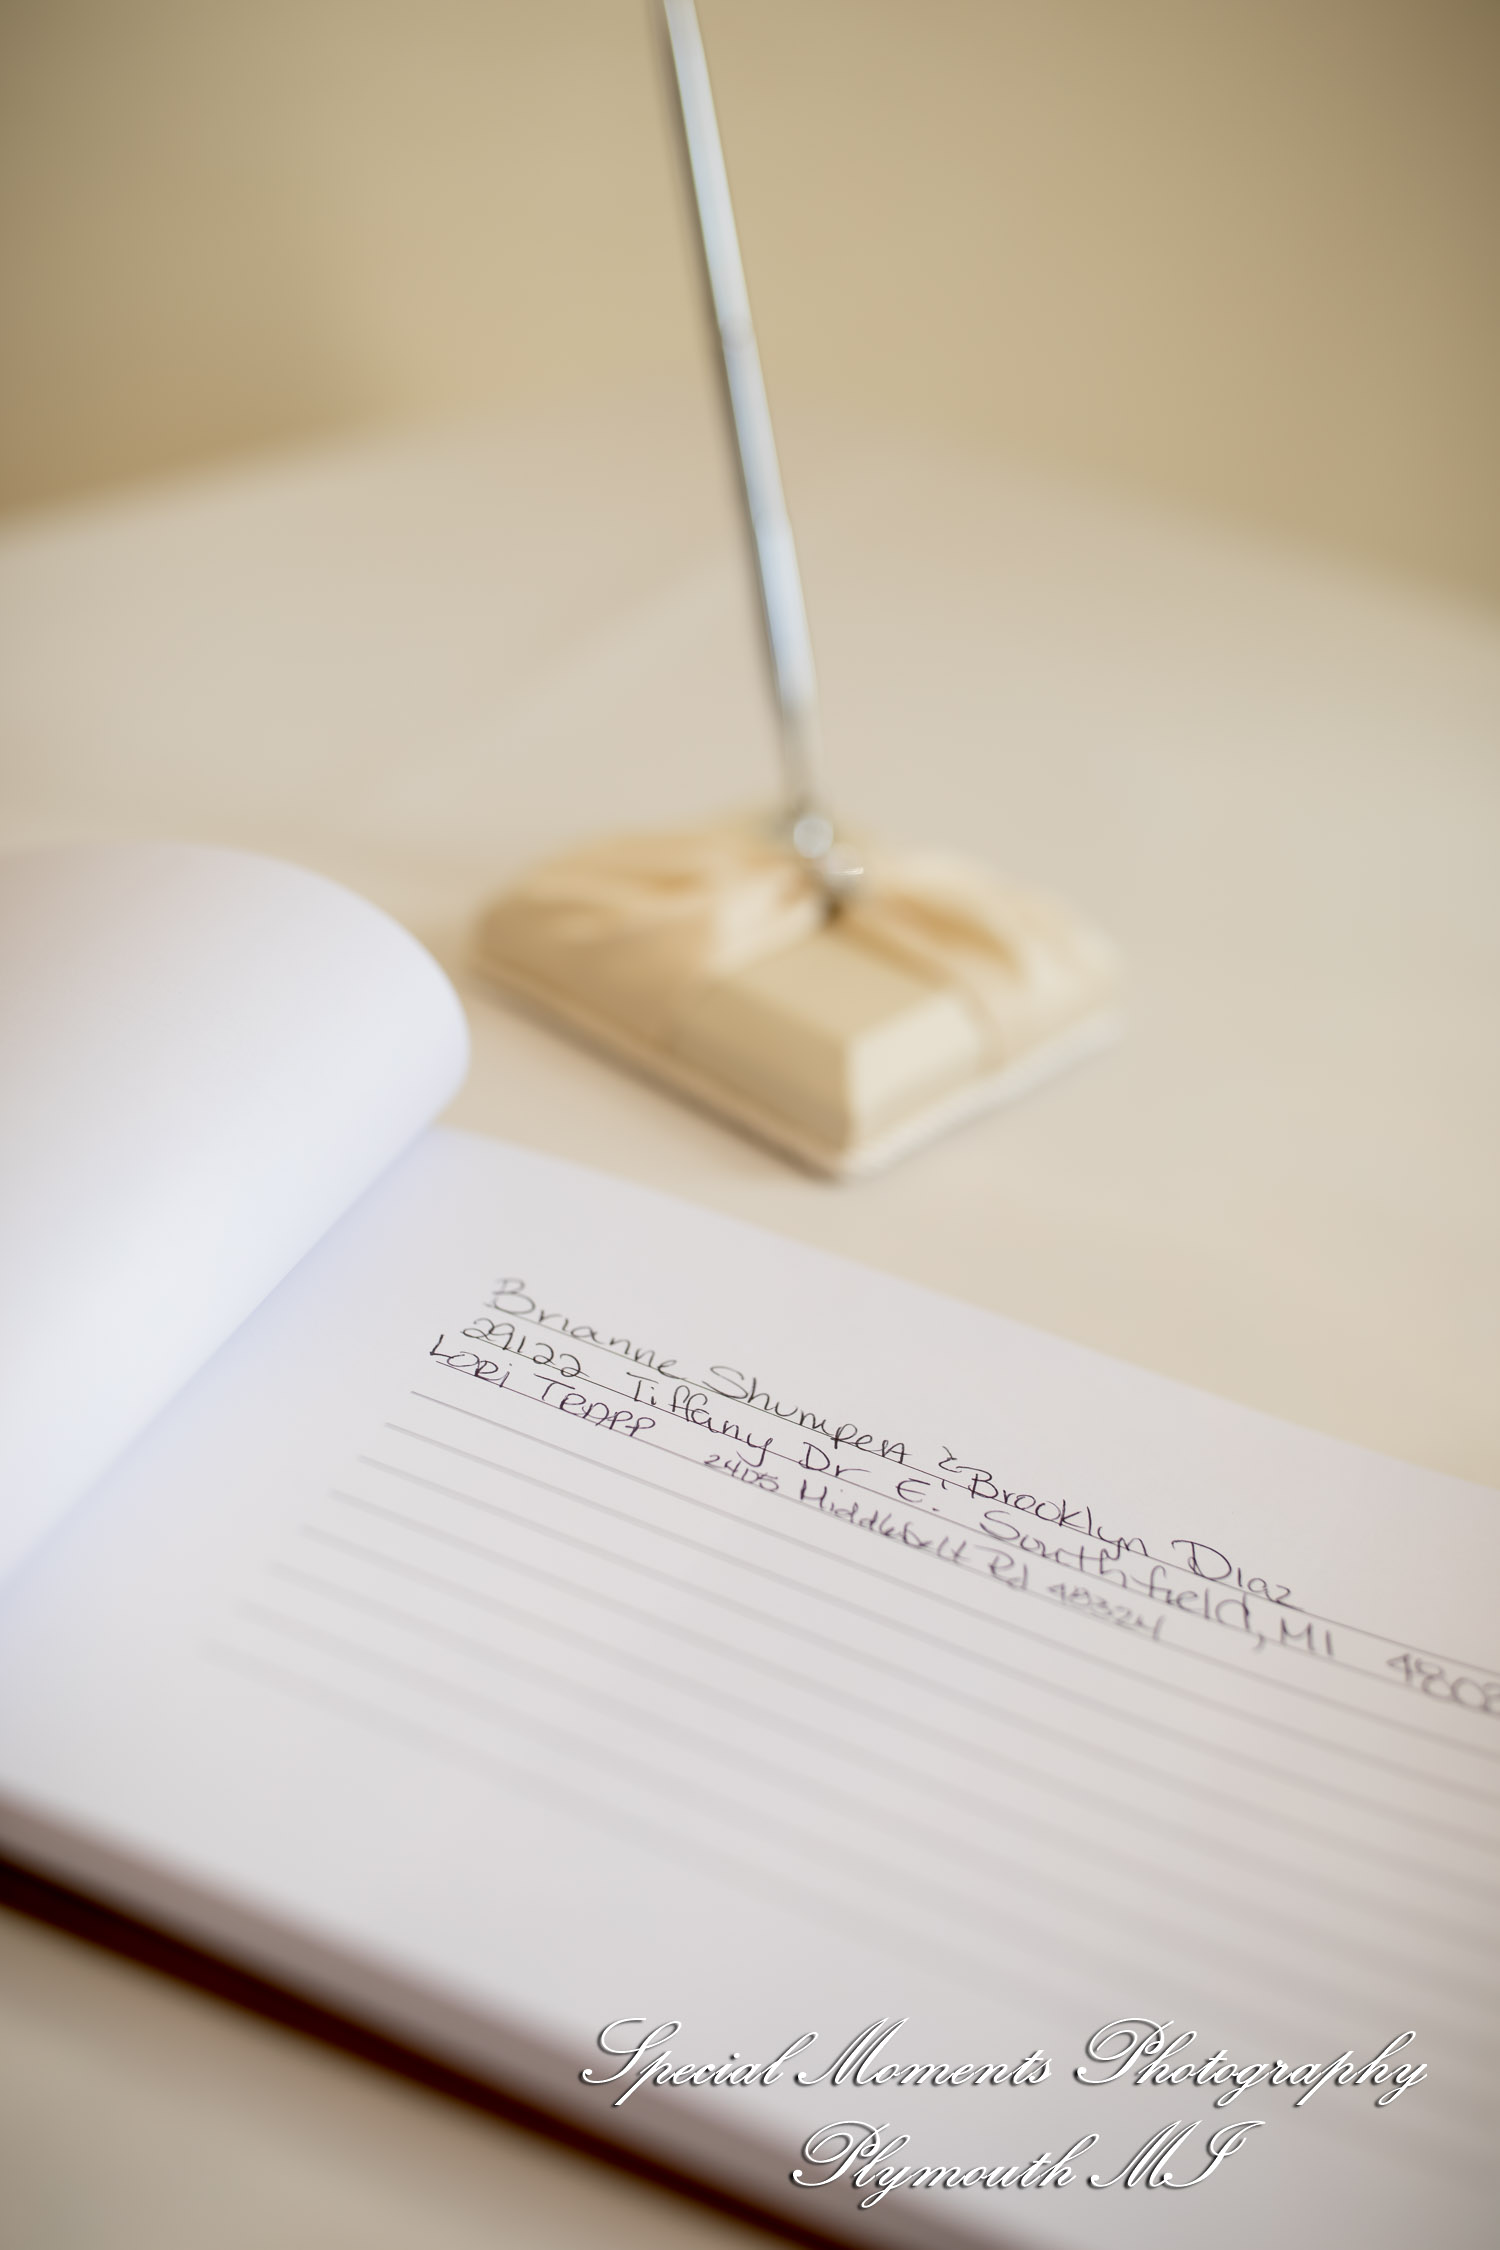 Brianne Shumpert & Brooklyn Diaz
29122 Tiffany Dr E. Southfield, MI 4803
LORi TRAPP 2405 Middlebelt Rd 48324
Special Moments Photography
Plymouth MI